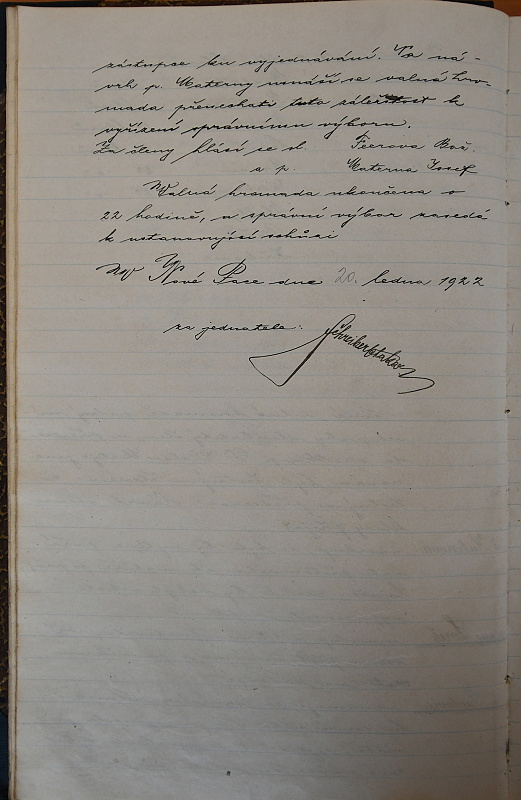 zástupce ku vyjednávání. Na ná-
vrh p. Materny usnáší se valná hro-
mada přenechati tuto záležitost k
vyřízení správnímu výboru.
Za členy hlásí se sl. Feerova Bož.
a p. Materna Josef
Valná hromada ukončena o
22 hodině, a správní výbor zasedá
k ustanovující schůzi
V Nové Pace dne 20. ledna 1922
za jednatele: